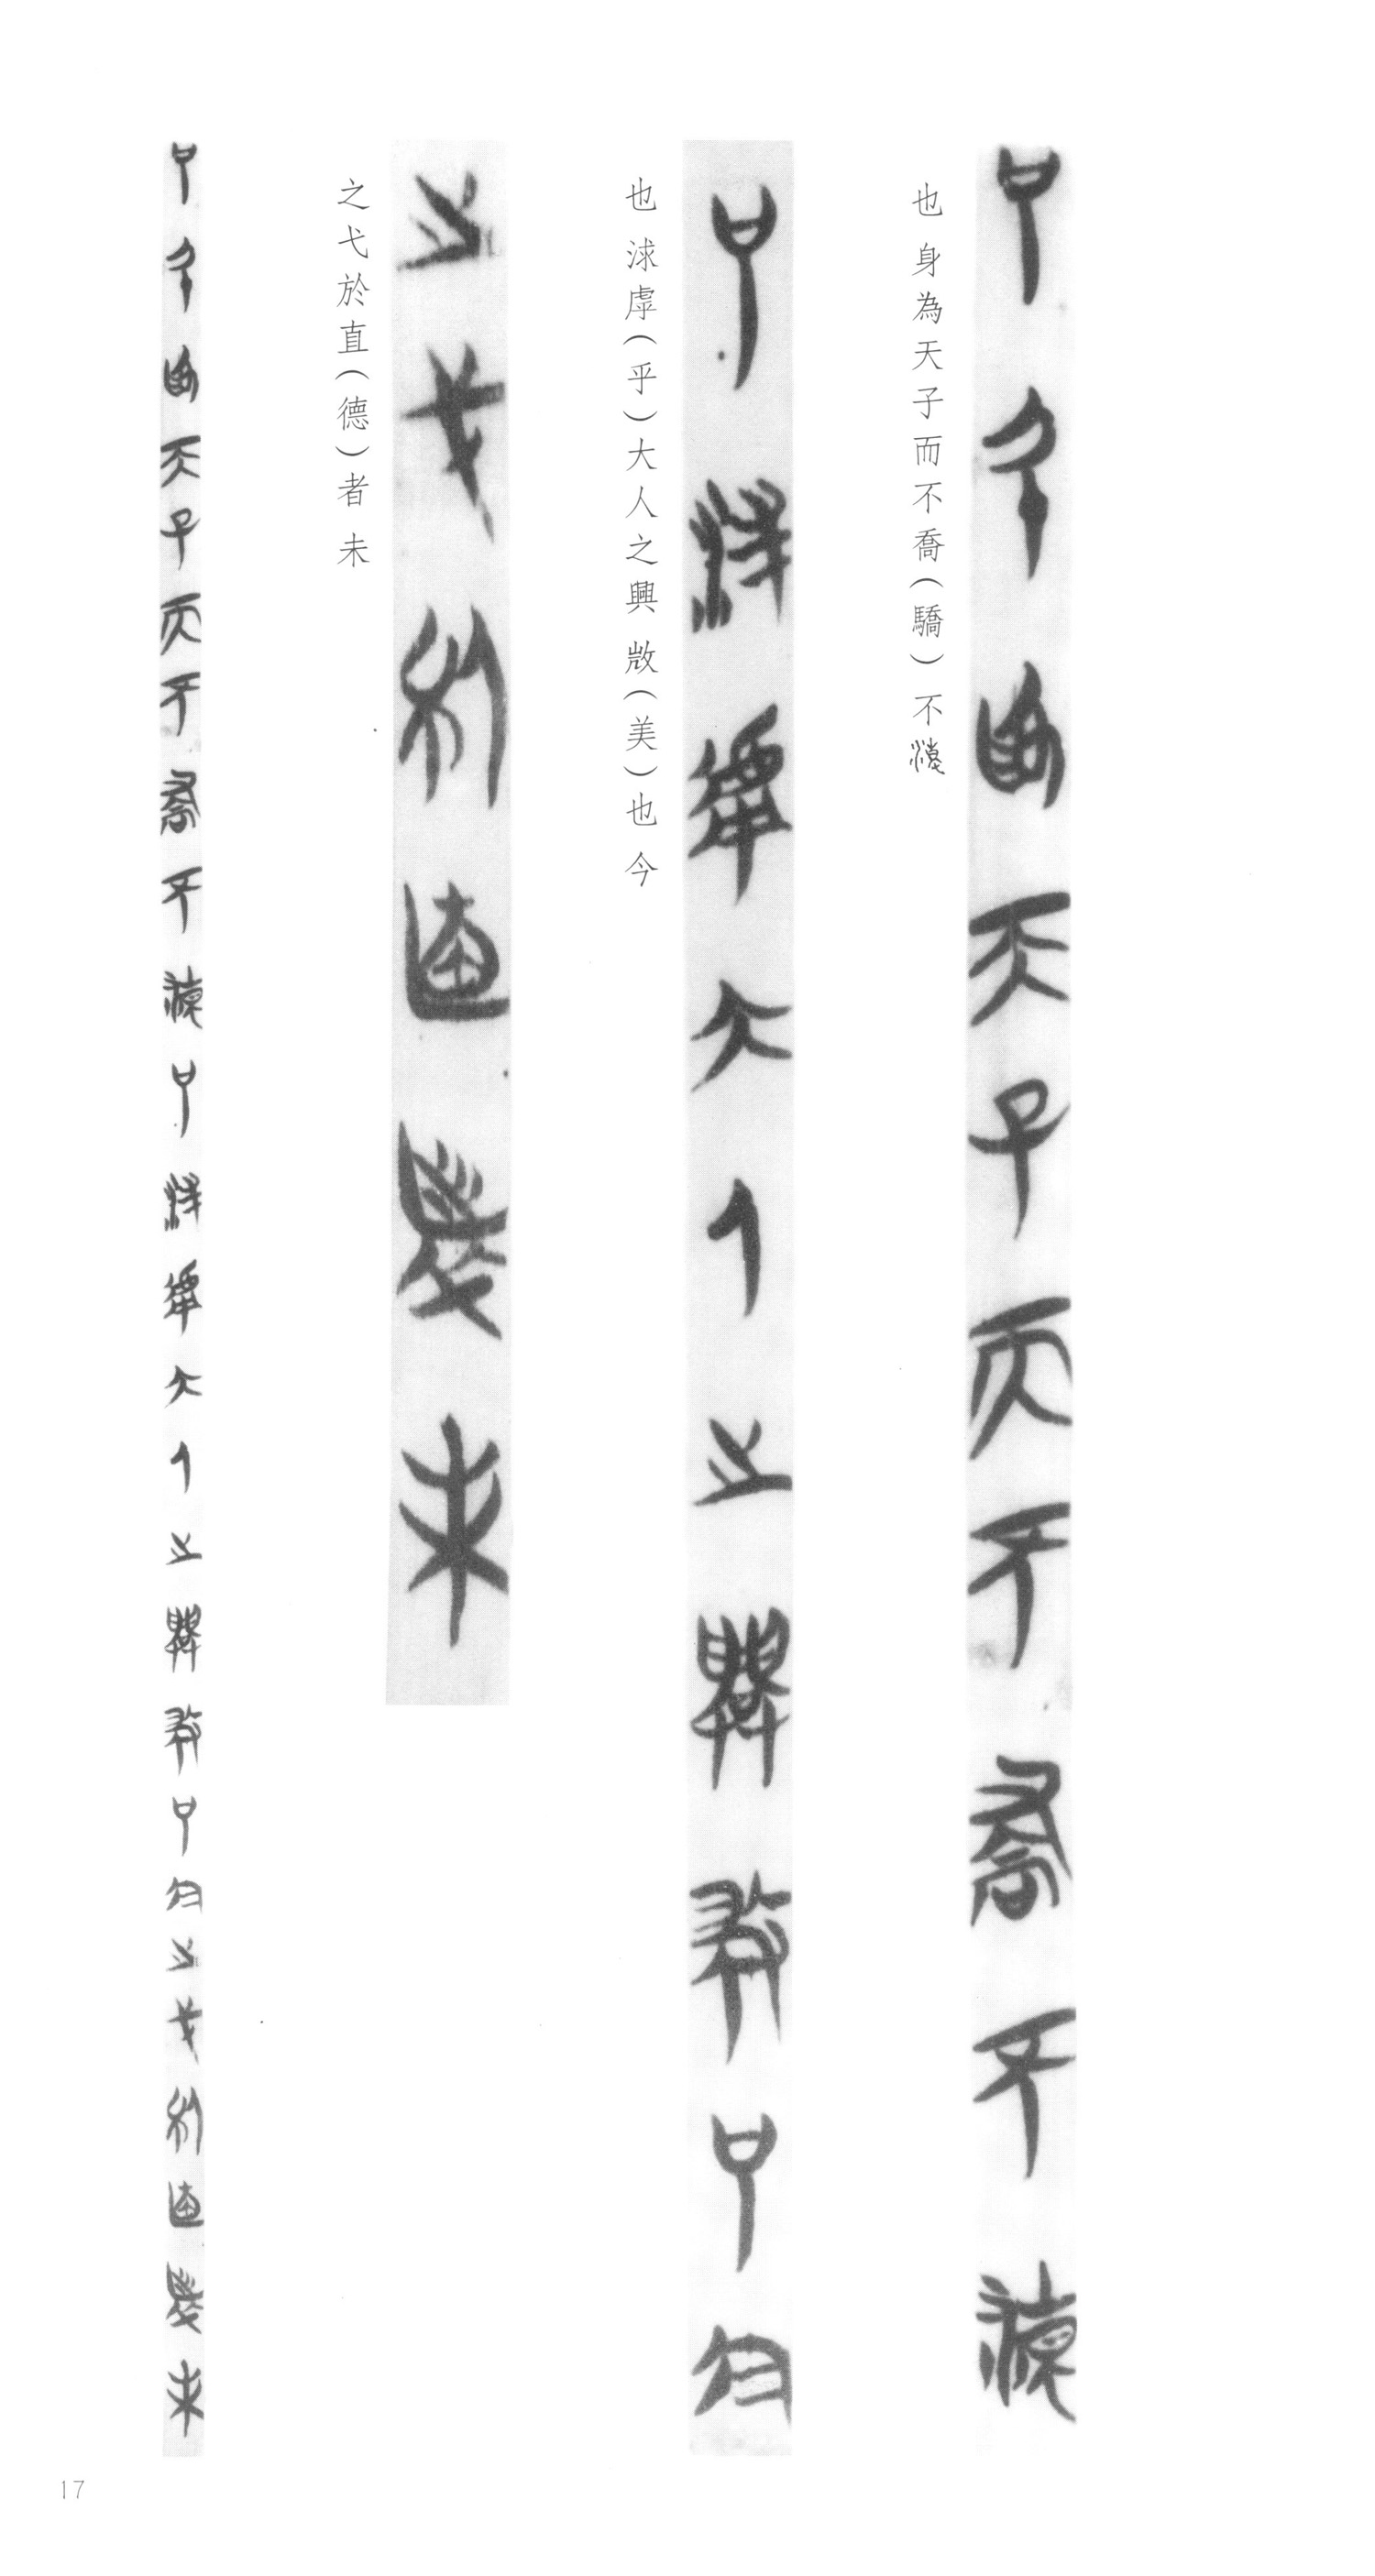 也 身為天子而不喬（驕） 不
也 浗虖（乎）大人之興 敚（美）也 今
之弋於直（德）者 未
17